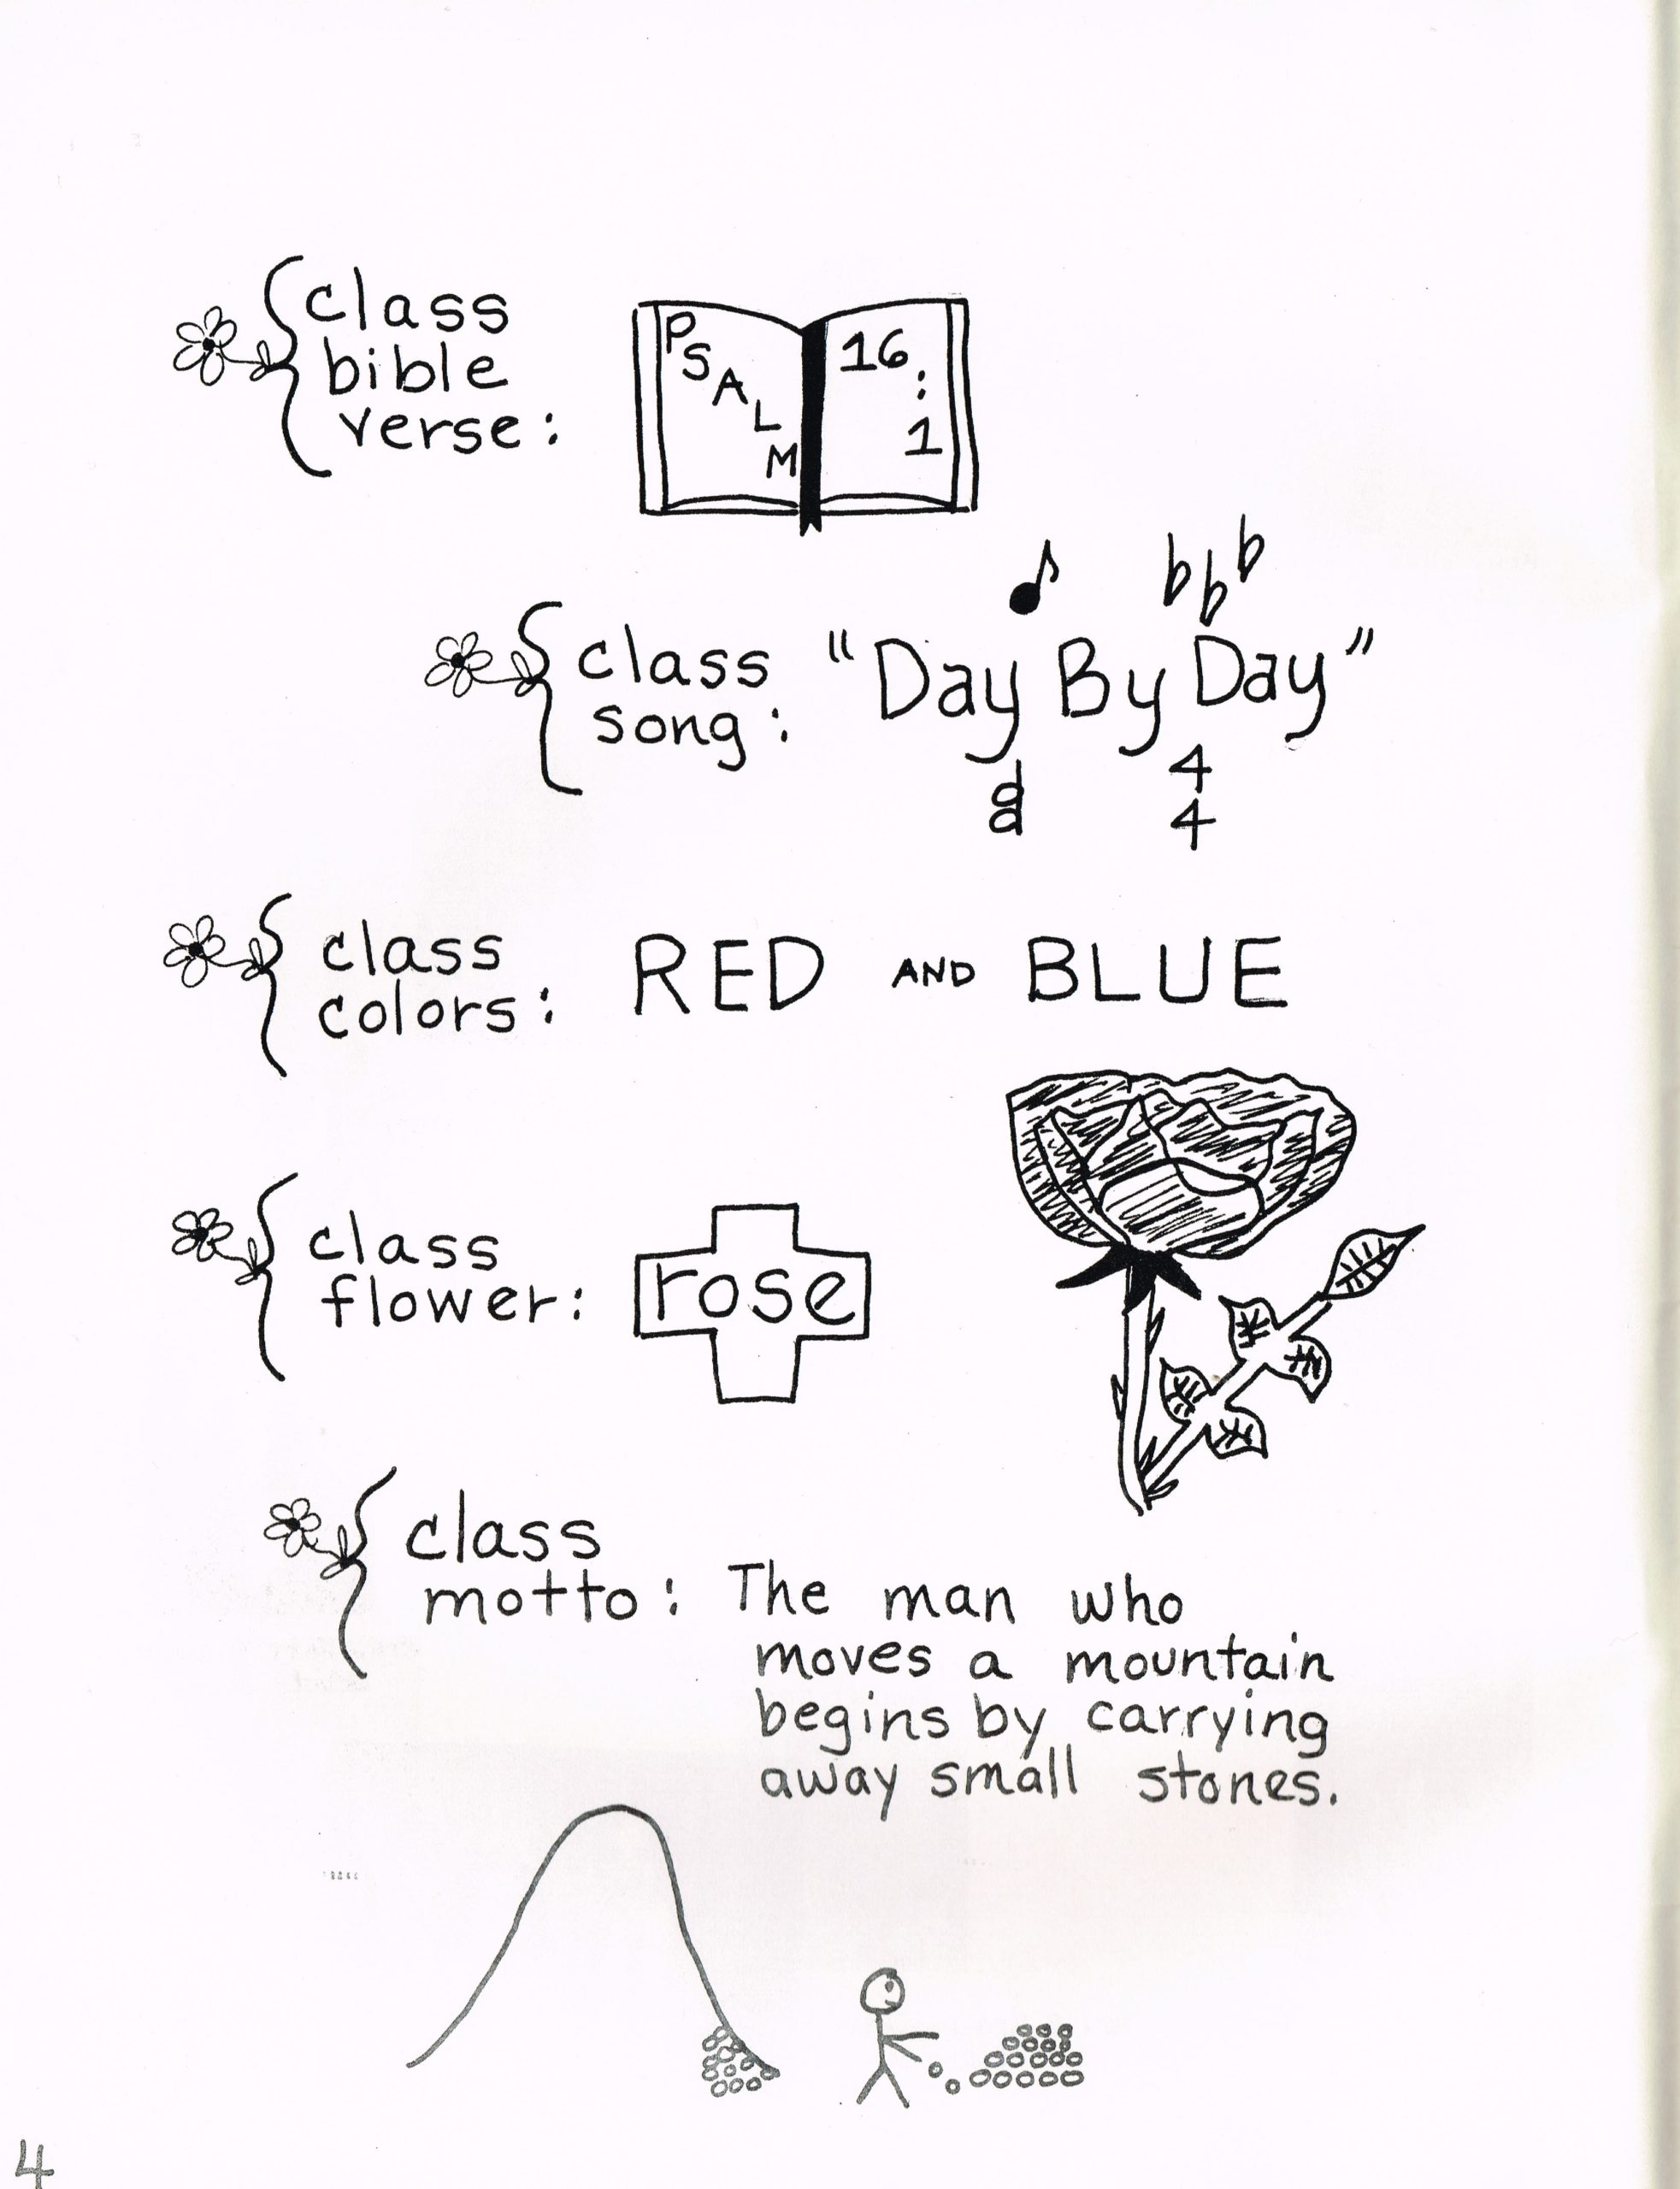 class
bible
verse:
PSALM
16:1
class
song:
"Day By Day"
4
4
class
colors:
RED AND BLUE
class
flower:
rose
class
motto: The man who
moves a mountain
begins by carrying
away small stones.
4